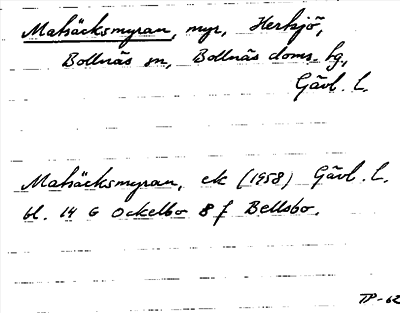 Matsäcksmyran, myr, Herkjö,
Bollnäs sn, Bollnäs doms. hg,
Gävl. l.
Matsäcksmyran, ek (1958) Gävl. l.
bl. 14 G Ockelbo 8 f Bellsbo.
TP-62